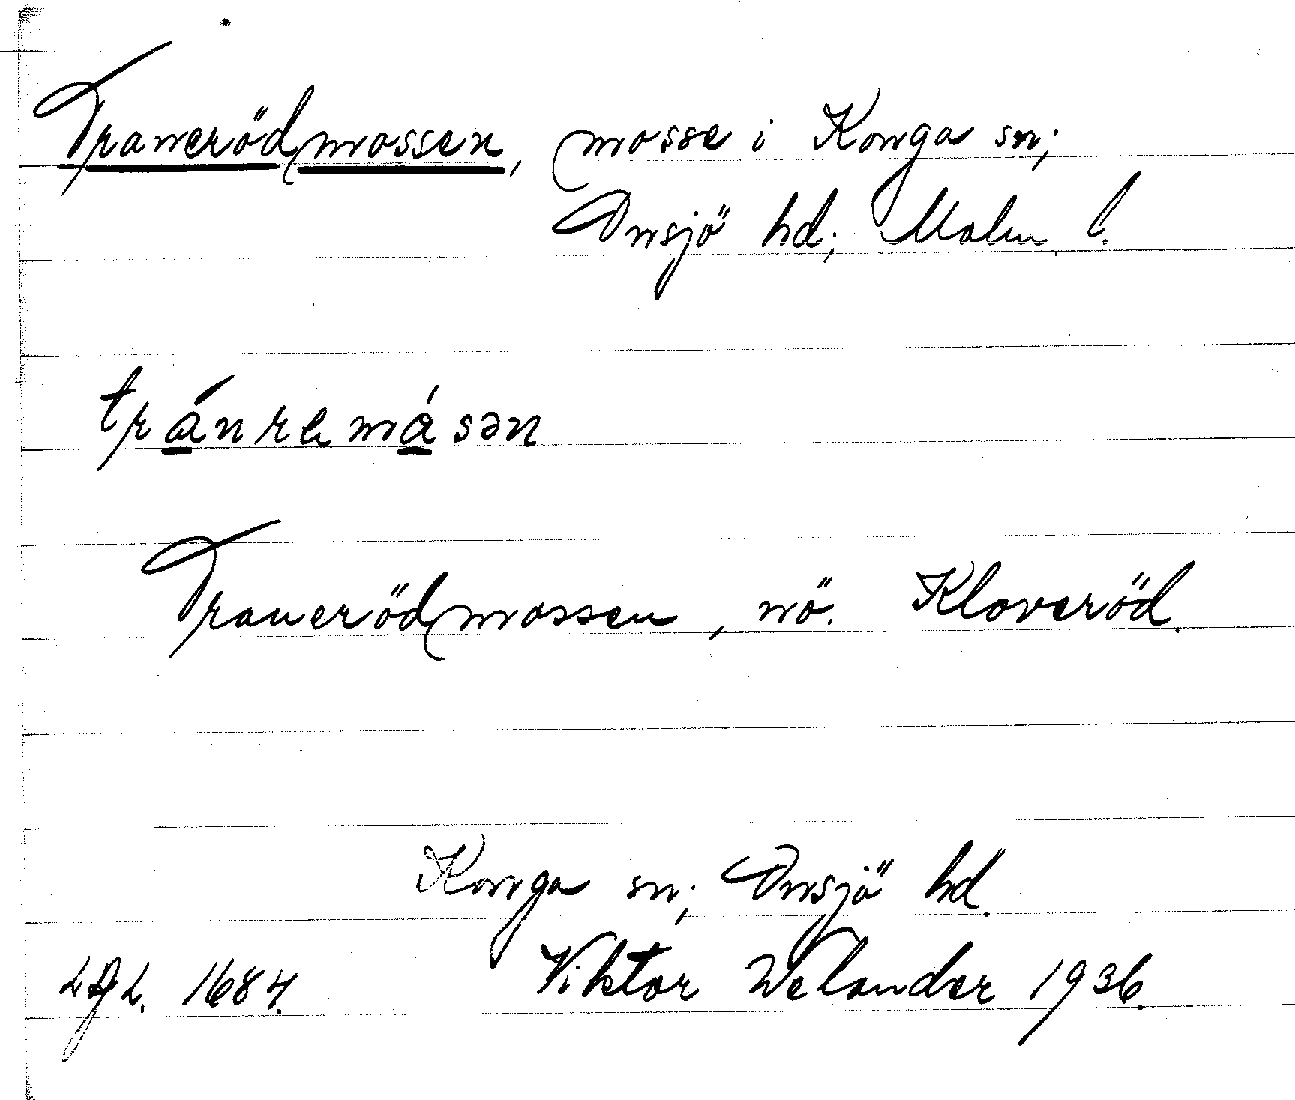 Tranerödmossen, mosse i Konga sn;
Onsjö hd; Malm. l.
tránremásən
Tranerödmossen, nö. Kloveröd.
Konga sn; Onsjö hd.
1684. Viktor Welander 1936.